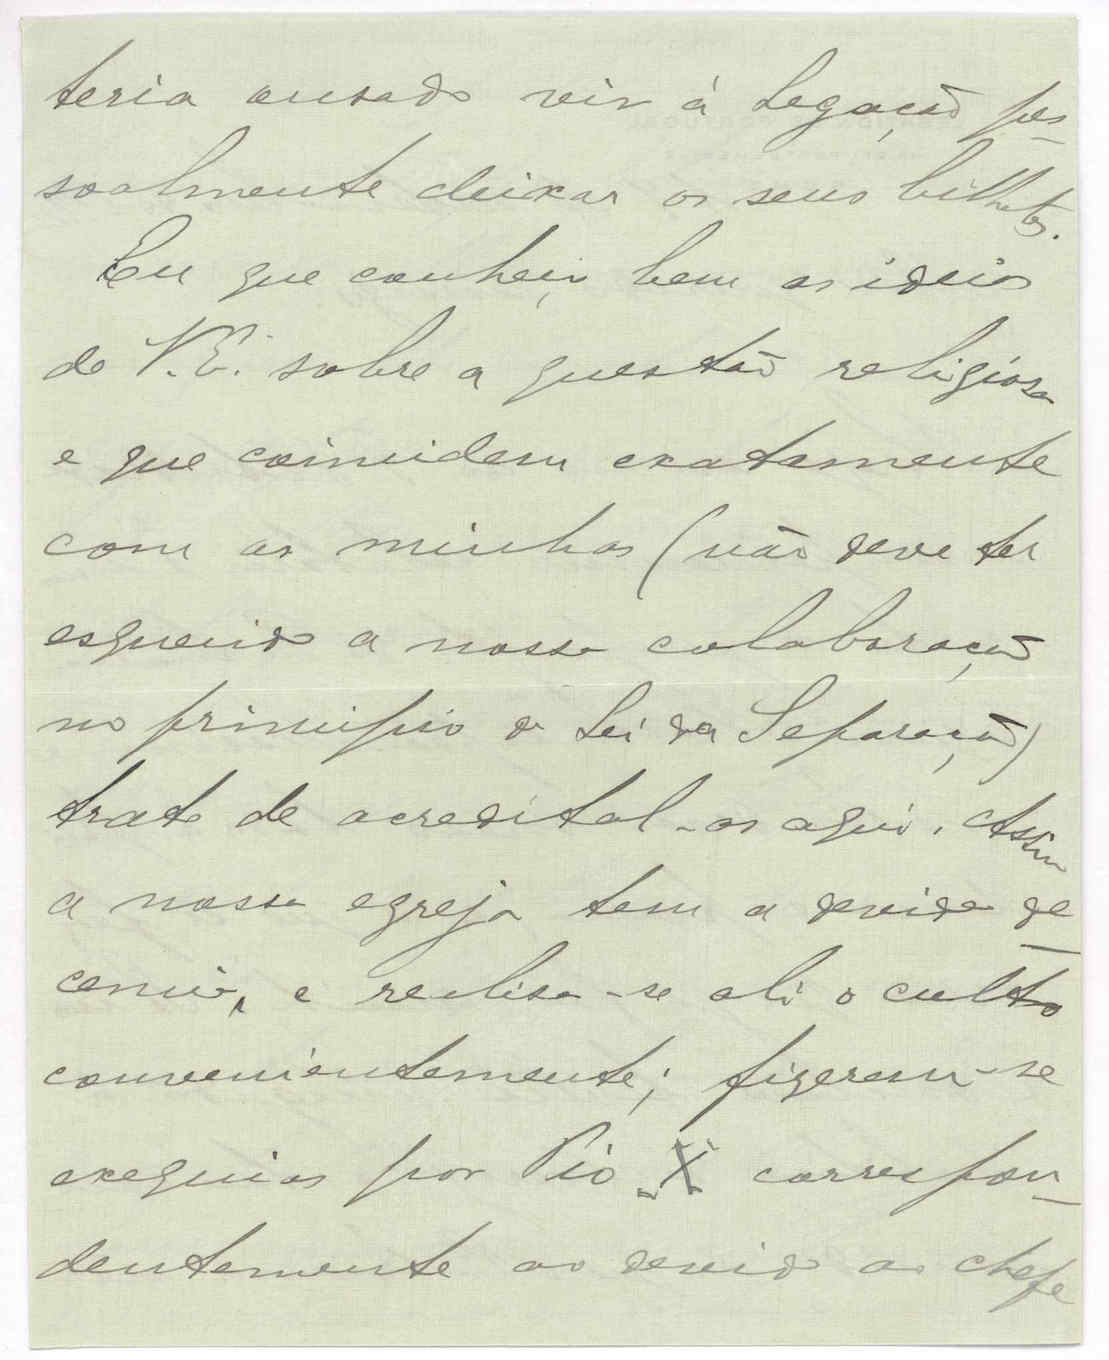 teria ousado vir á Legação pes-
soalmente deixar os seus bilhetes.
Eu que conheço bem as ideias
de V. Eª. sobre a questão religiosa
e que coincidem exatamente
com as minhas (não deve ter
esquecido a nossa colaboração
no principio da Lei da Separação)
trato de acredital-as aqui. Assim
a nossa egreja tem a devida de-
cencia, e realisa-se ali o culto
convenientemente; fizeram-se
exequias por Pio X correspon-
dentemente ao devido ao chefe